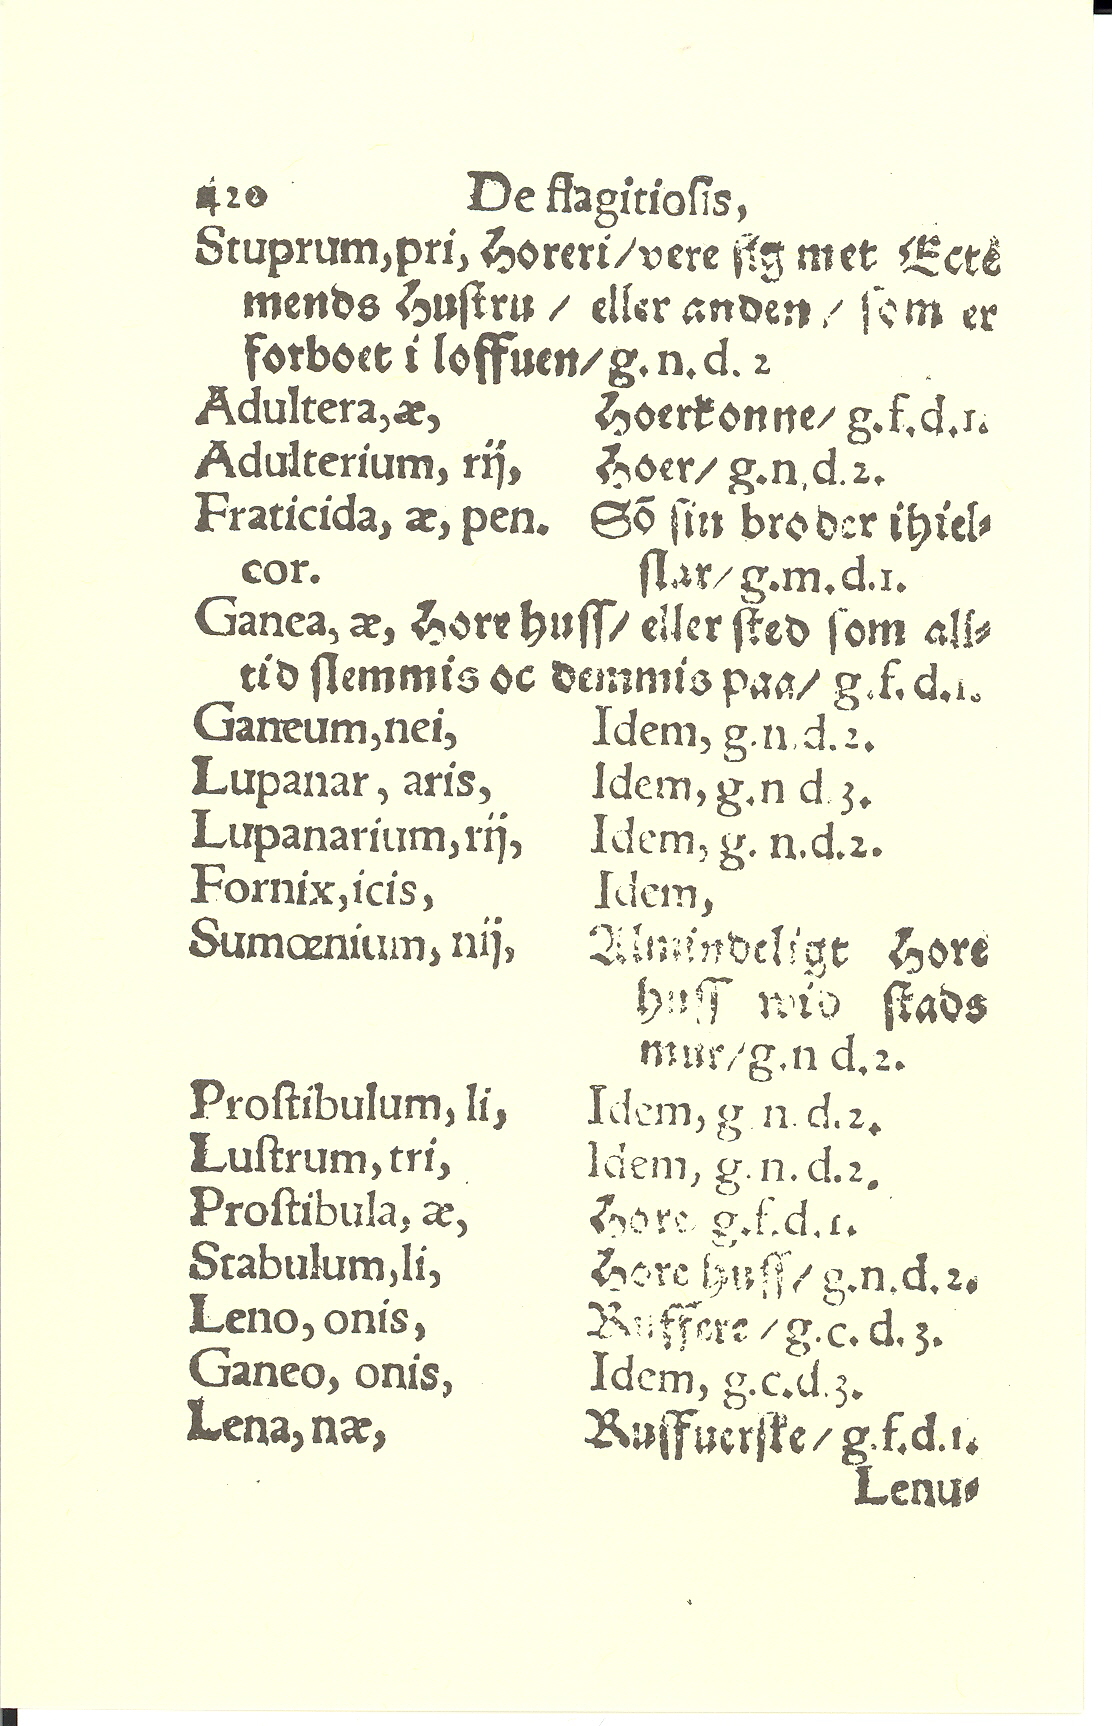 420 De flagitioſis,
Stuprum, pri, Horeri/ vere ſig met Ecte
mends Huſtru / eller anden / ſom er
forboet i loffuen/ g. n. d. 2
Adultera, æ, Hoerkonne/ g. f. d. 1.
Adulterium, rij, Hoer/ g. n. d. 2.
Fraticida, æ, pen. Sõ ſin broder ihiel⸗
cor. ſlar/ g. m. d. 1.
Ganea, æ, Hore huſſ/ eller ſted ſom all⸗
tid ſlemmis oc demmis paa/ g. f. d. 1.
Ganeum, nei, Idem, g. n. d. 2.
Lupanar, aris, Idem, g. n d. 3.
Lupanarium, rij, Idem, g. n. d. 2.
Fornix, icis, Idem,
Sumœnium, nij, Almindeligt Hore
huſſ wid ſtads
mur/ g. n d. 2.
Proſtibulum, li, Idem, g n. d. 2.
Luſtrum, tri, Idem, g. n. d. 2.
Proſtibula, æ, Hore g. f. d. 1.
Stabulum, li, Hore huſſ/ g. n. d. 2.
Leno, onis, Ruffere / g. c. d. 3.
Ganeo, onis, Idem, g. c. d. 3.
Lena, næ, Ruffuerſke/ g. f. d. 1.
Lenu⸗